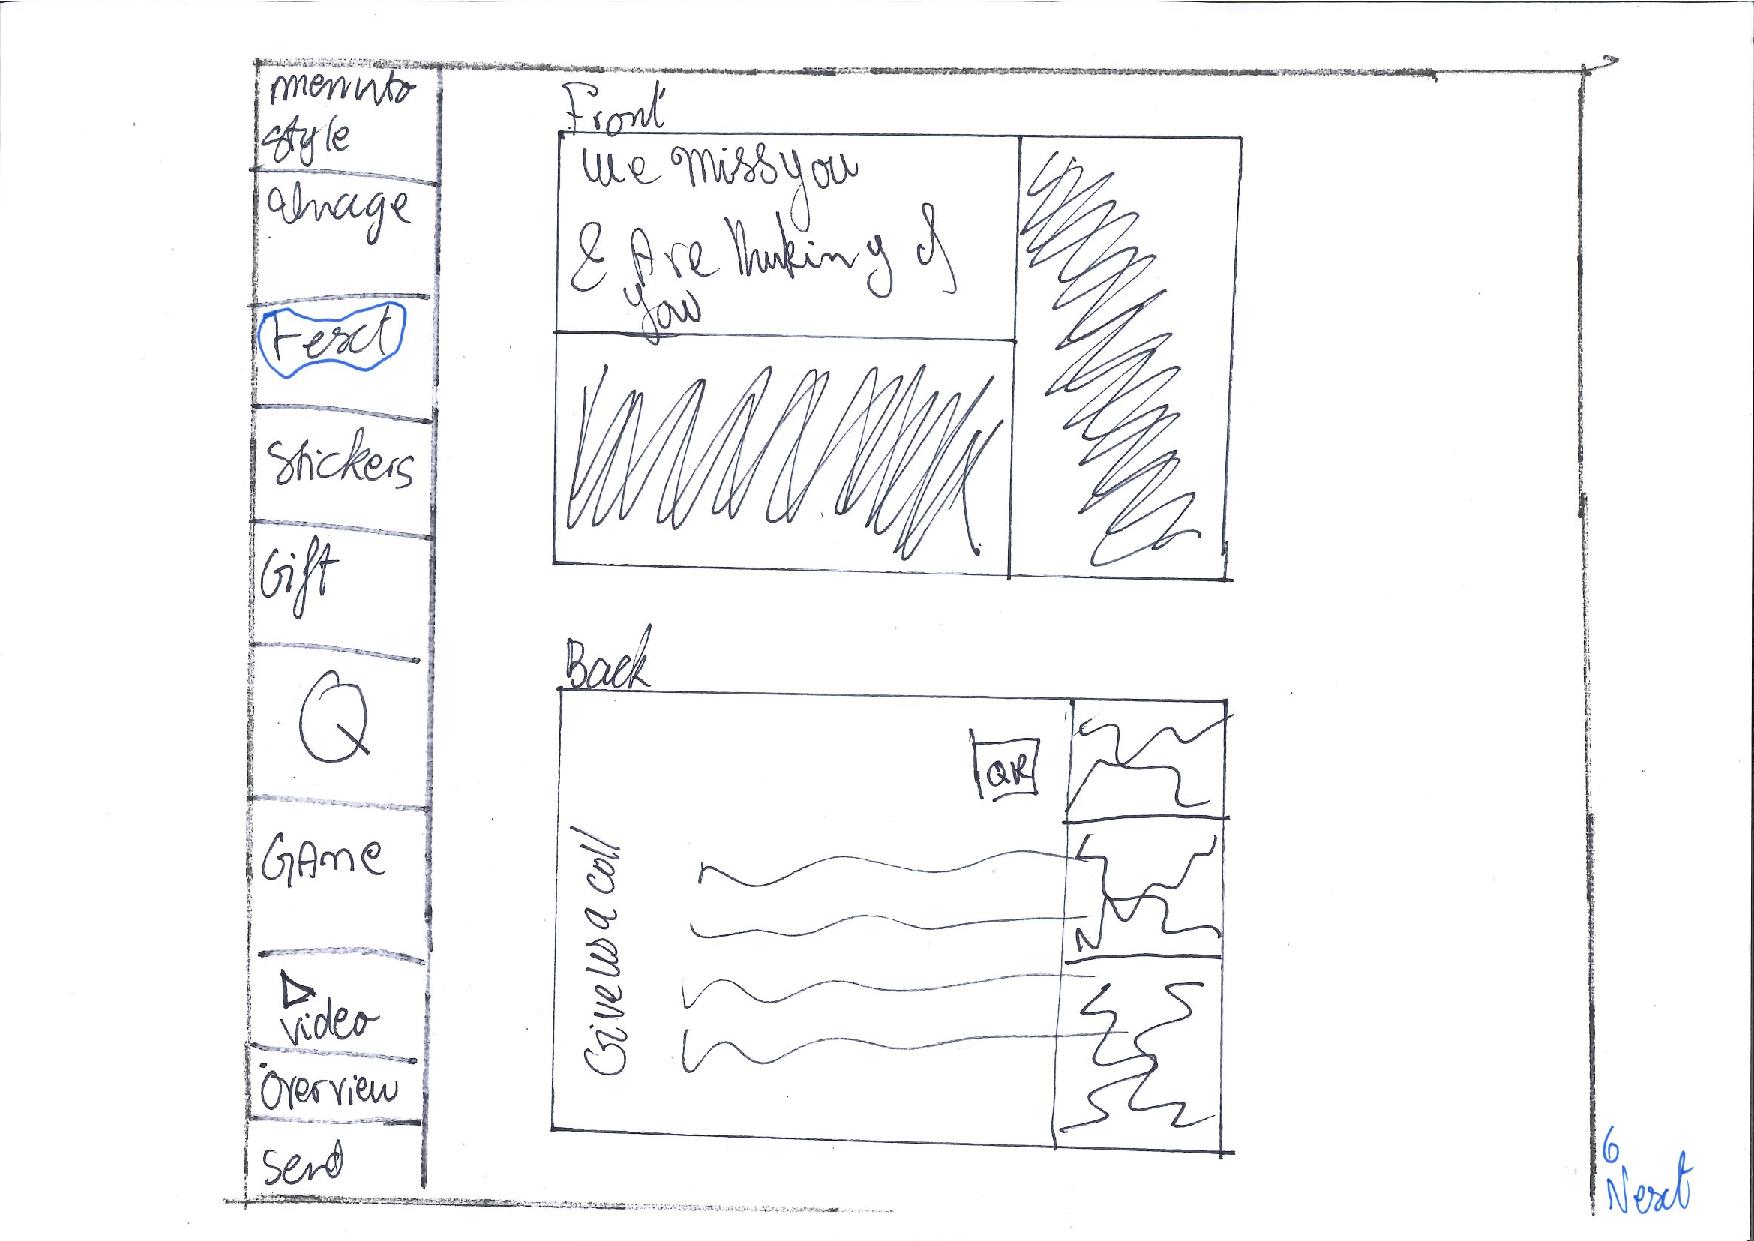 memnto
style
Image
Text
Stickers
Gift
Q
GAme
video
Overview
Send
Front
We Miss you
& Are thinking of
you
Back
QR
Give us a call
6
Next